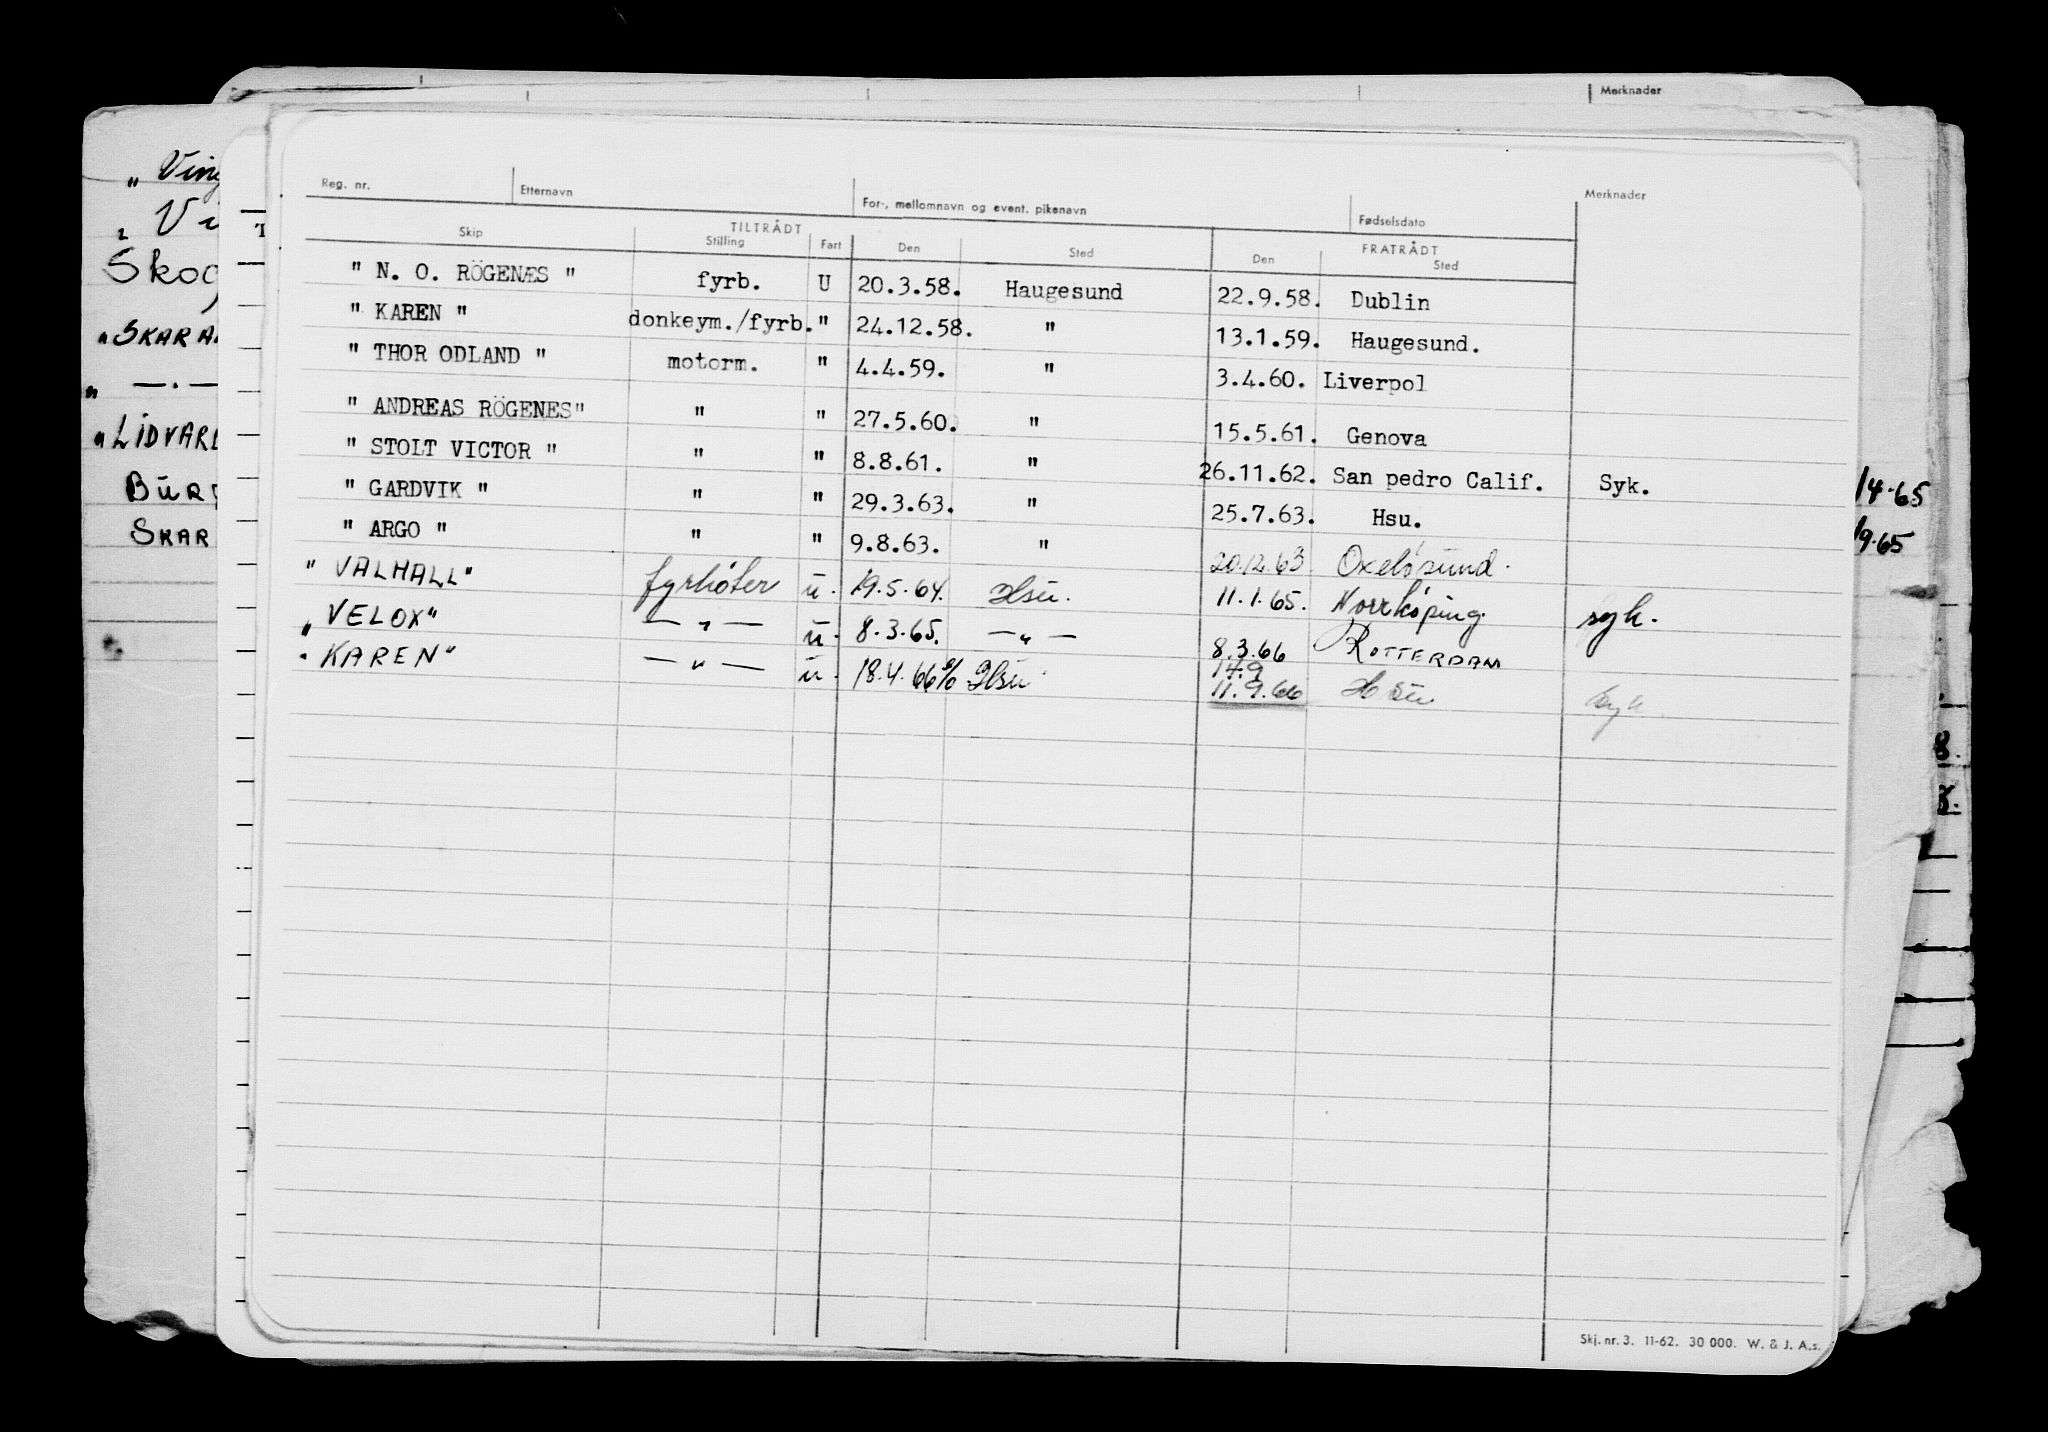 Merknader
Reg. nr. Etternavn For-, mellomnavn og event. pikenavn Fødselsdato Merknader
TILTRÅDT FRATRÅDT
Skip Stilling Fart Den Sted Den Sted
" N. O. RÖGENÆS " fyrb. U 20.3.58. Haugesund 22.9.58. Dublin
" KAREN " donkeym./fyrb. " 24.12.58. " 13.1.59. Haugesund.
" THOR ODLAND " motorm. " 4.4.59. " 3.4.60. Liverpol
" ANDREAS RÖGENES" " " 27.5.60. " 15.5.61. Genova
" STOLT VICTOR " " " 8.8.61. " 26.11.62. San pedro Calif. Syk.
" GARDVIK " " " 29.3.63. " 25.7.63. Hsu.
" ARGO " " " 9.8.63. " 20.12.63 Oxelösund.
"VALHALL" fyrbøter u. 19.5.64. Hsu. 11.1.65. Norrköping syk.
"VELOX" — " — u. 8.3.65. — " — 8.3.66 ROTTERDAM
"KAREN" — " — u. 18.4.66 Hsu 14.9
11.9.66 Hsu syk.
Skj. nr. 3. 11-62. 30 000. W. & J. A.s.
Skog
"SKARA
"LIDVARD
BURG
SKAR
14.65
19.65
8.